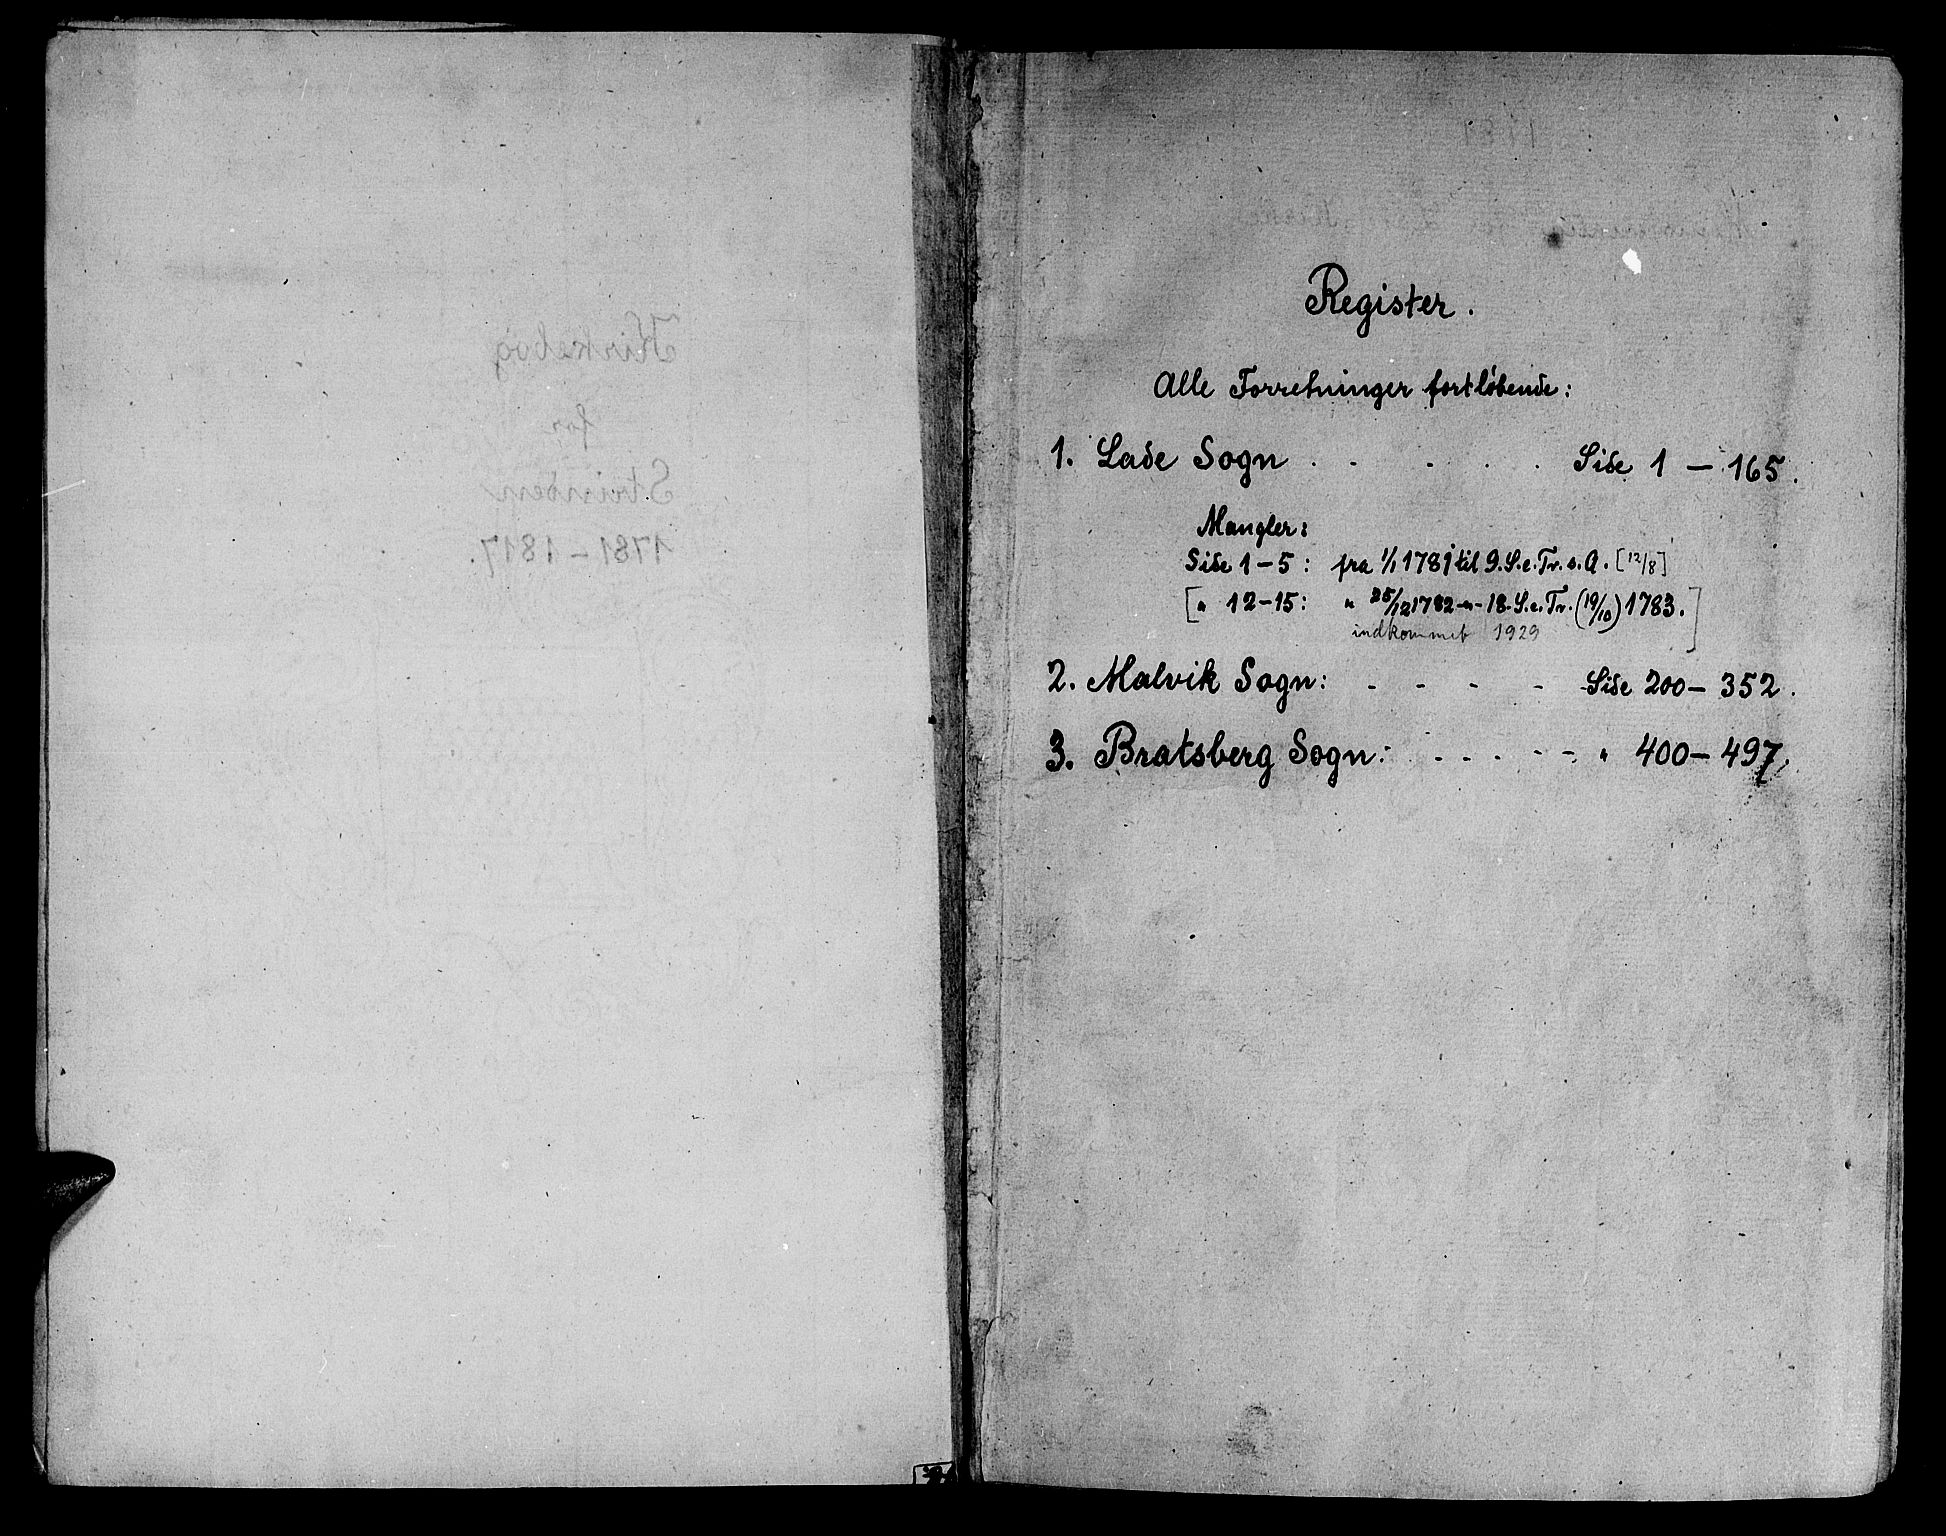 Kirkebog
for
Strinden
1781-1817.
1781
Register.
Alle Forretninger fortløbende:
1. Lade Sogn . . . . . Side 1 – 165.
Mangler:
Side 1–5: fra 1/1 1781 til 9. S. e. Tr. s. A. [12/8]
[ " 12–15: " 25/12 1782 -"- 18. S. e. Tr. (19/10) 1783. ]
indkommet 1929
2. Malvik Sogn: - - - - Side 200 – 352.
3. Bratsberg Sogn: - - - - - " 400 – 497.